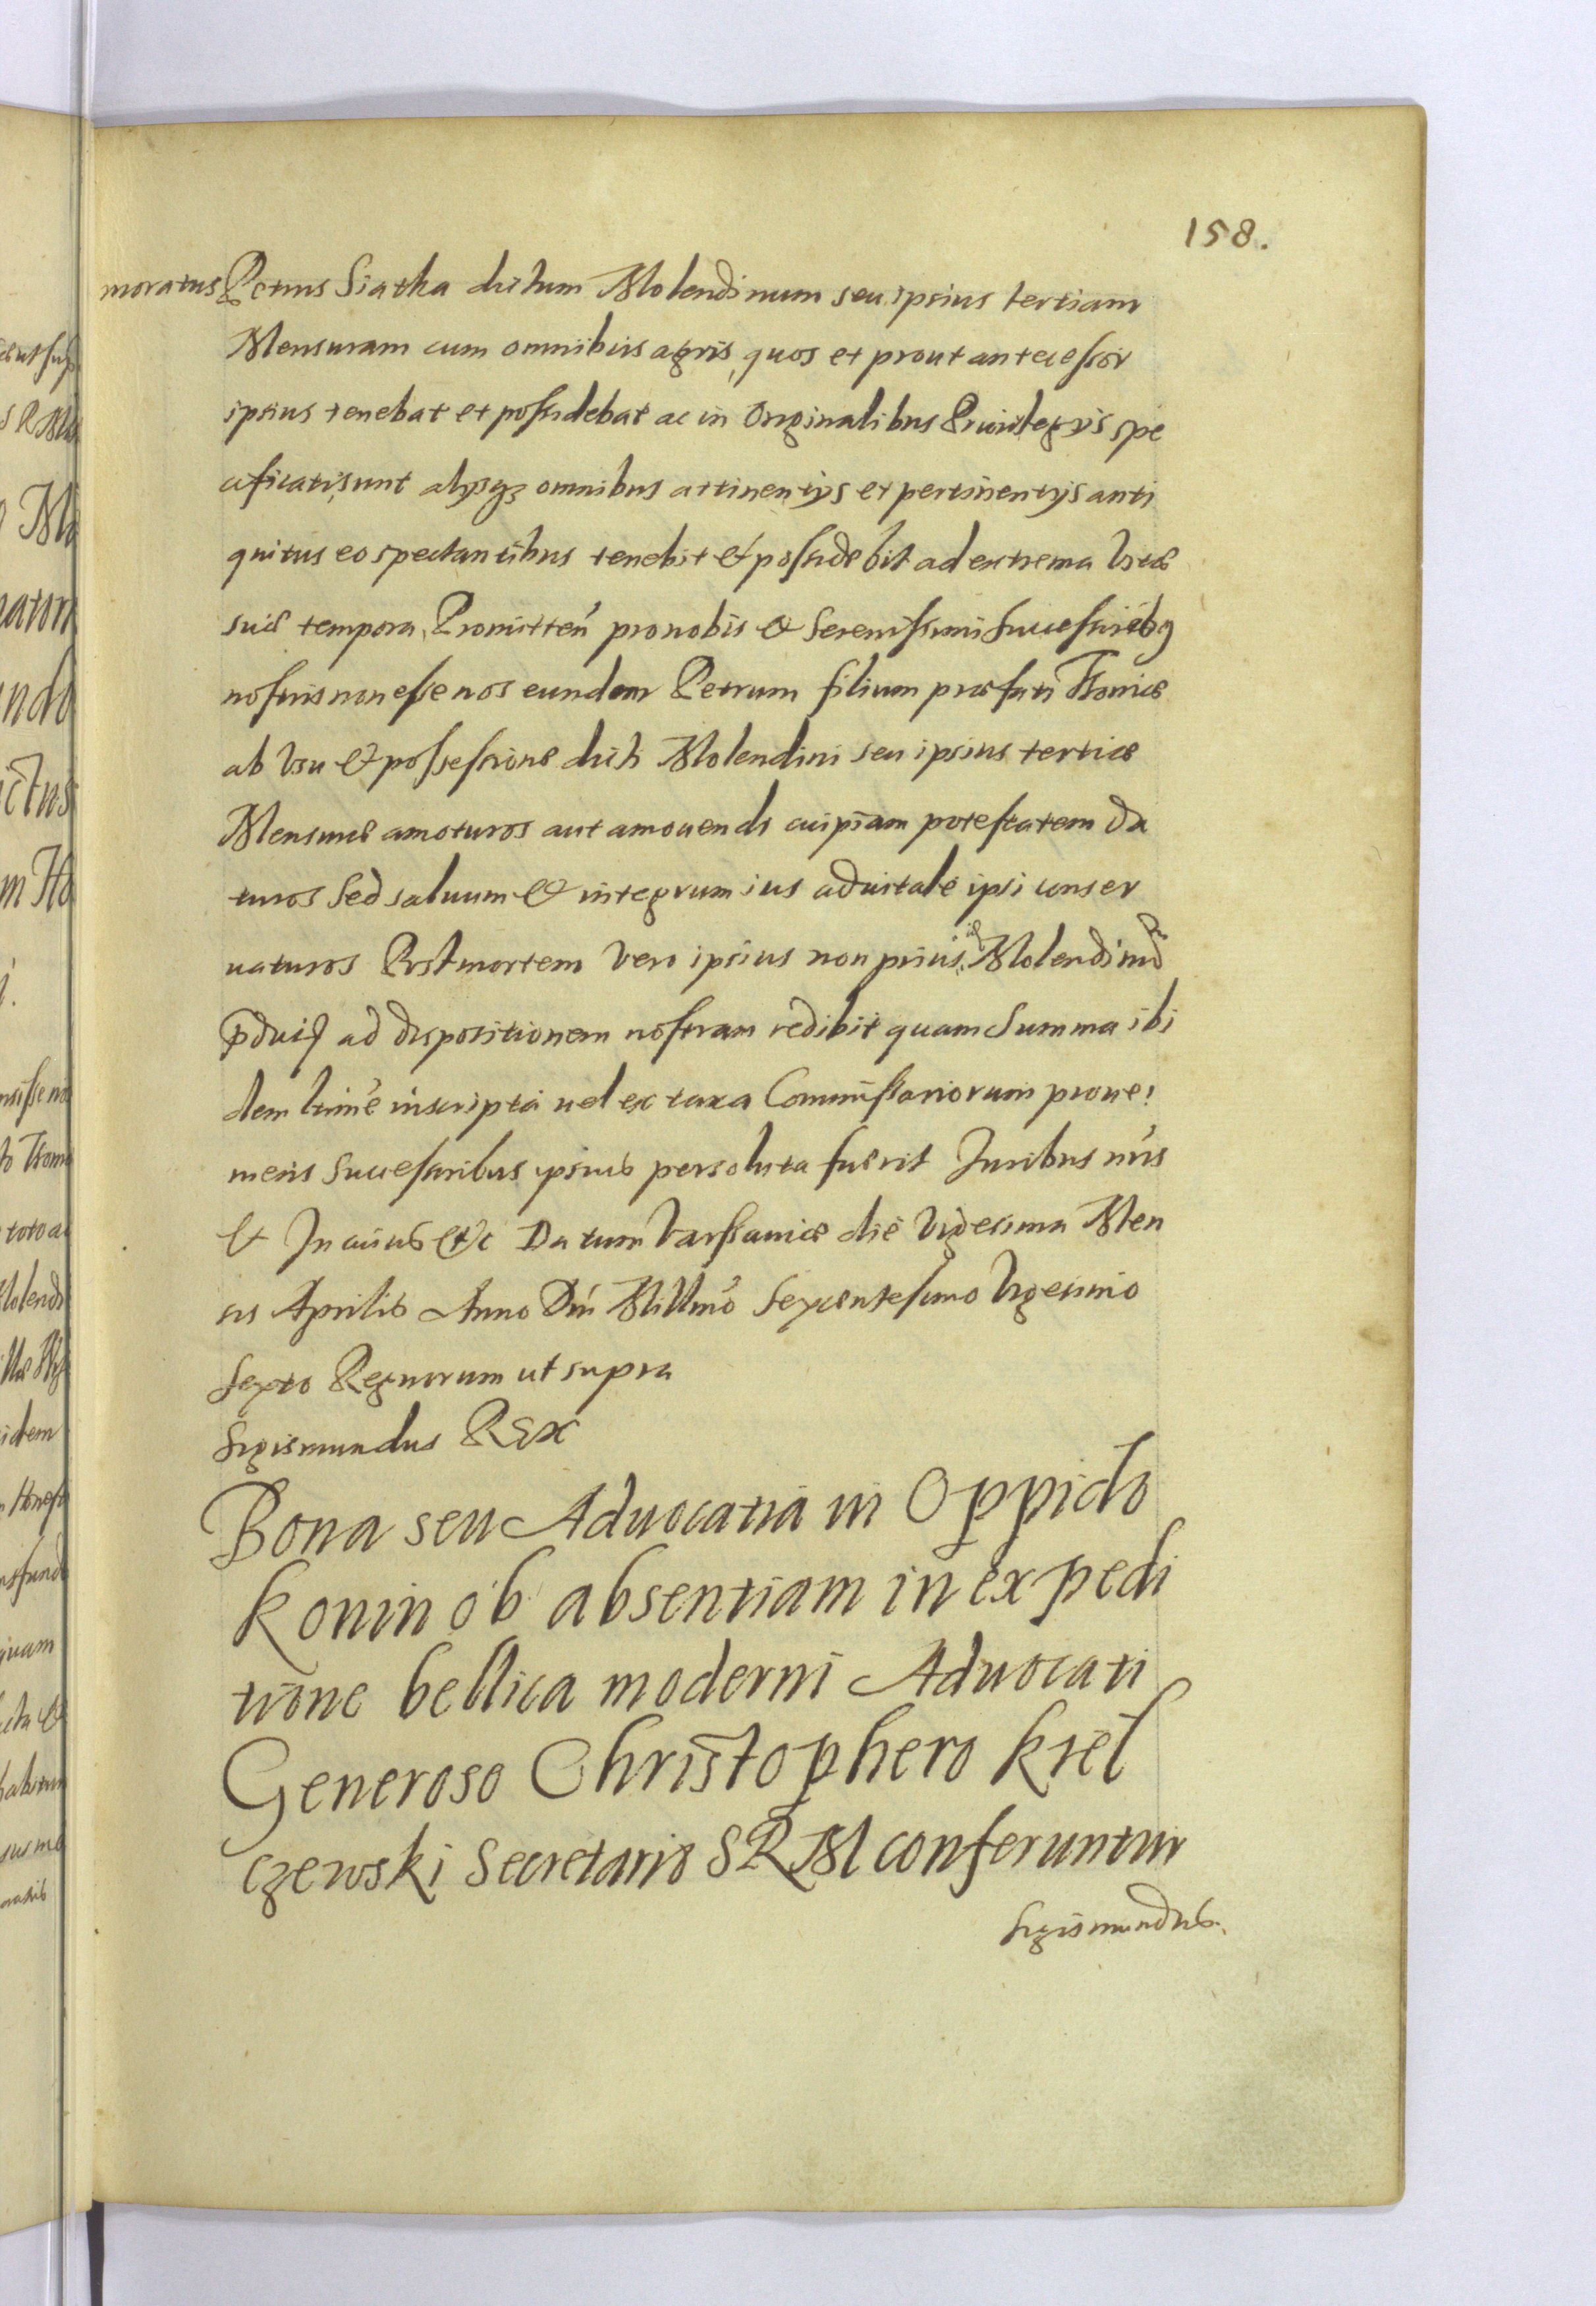 158.
moratus Petrus Siatka dictum Molendinum seu ipsius tertiam
Mensuram cum omnibus agris, quos et prout antecessor
ipsius tenebat et possidebat ac in Originalibus Privilegijs spe
cificati sunt alijsq3 omnibus attinentijs et pertinentijs anti
quitus eo spectantibus tenebit & possidebit ad extrema Vitæ
suæ tempora, Promitten̄ pro nobis & Serenissimi Successorib9
nostris non esse nos eundem Petrum filium præfati
ab Vsu & possessione dicti Molendini seu ipsius tertiæ
Mensuræ amoturos aut amouendi cuipiam potestatem da
turos Sed saluum & integrum ius aduitale ipsi conser
uaturos Post mortem Vero ipsius non prius id Molendinū
ad dispositionem nostram redibit quam Summa ibi
dem inscripta uel ex taxa Commissariorum proue:
niens Successoribus ipsius persoluta fuerit Juribus nr̄is
& In cuius &c Datum Varssauiæ die Vigesima Men
sis Aprilis Anno Dn̄i Mill̄mo Sexcentesimo Vigesimo
Sexto Regnorum ut supra
Sigismundus REX
Bona seu Aduocatia in Oppido
Konin ob absentiam in expedi
tione bellica moderni Aduocati
Generoso Christophero Kieł
czewski Secretario SRM conferuntur
Sigismundus.